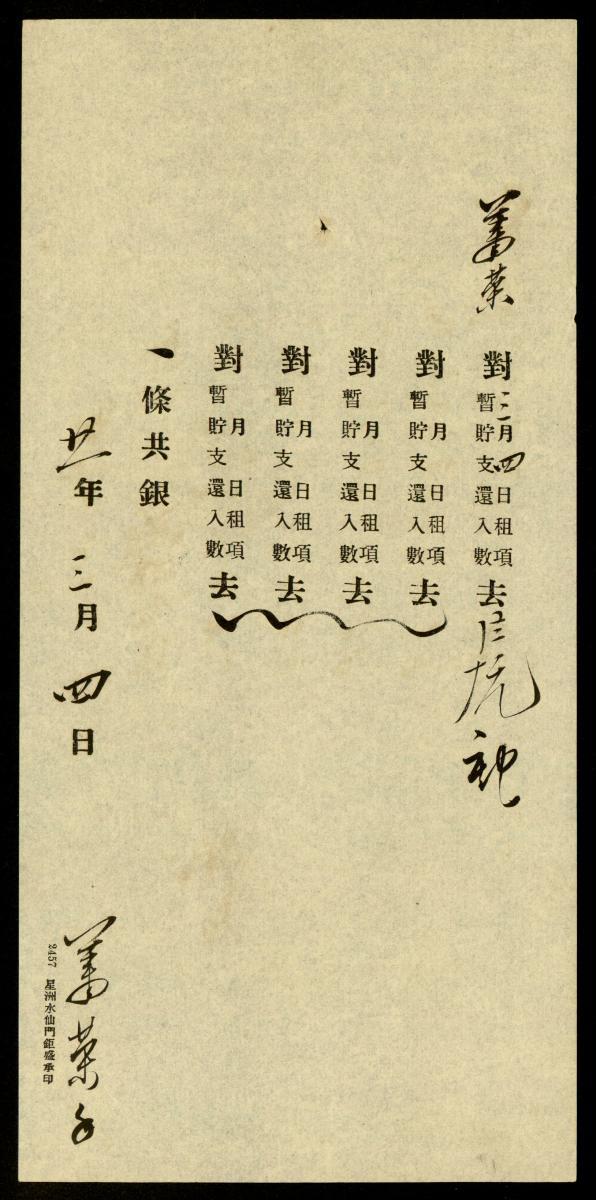 對三月四日租項暫貯支還入數去
對月日租項暫貯支還入數去
對月日租項暫貯支還入數去
對月日租項暫貯支還入數去
對月日租項暫貯支還入數去
一條共銀
年三月四日
榮
2457 星洲水仙門鉅盛承印